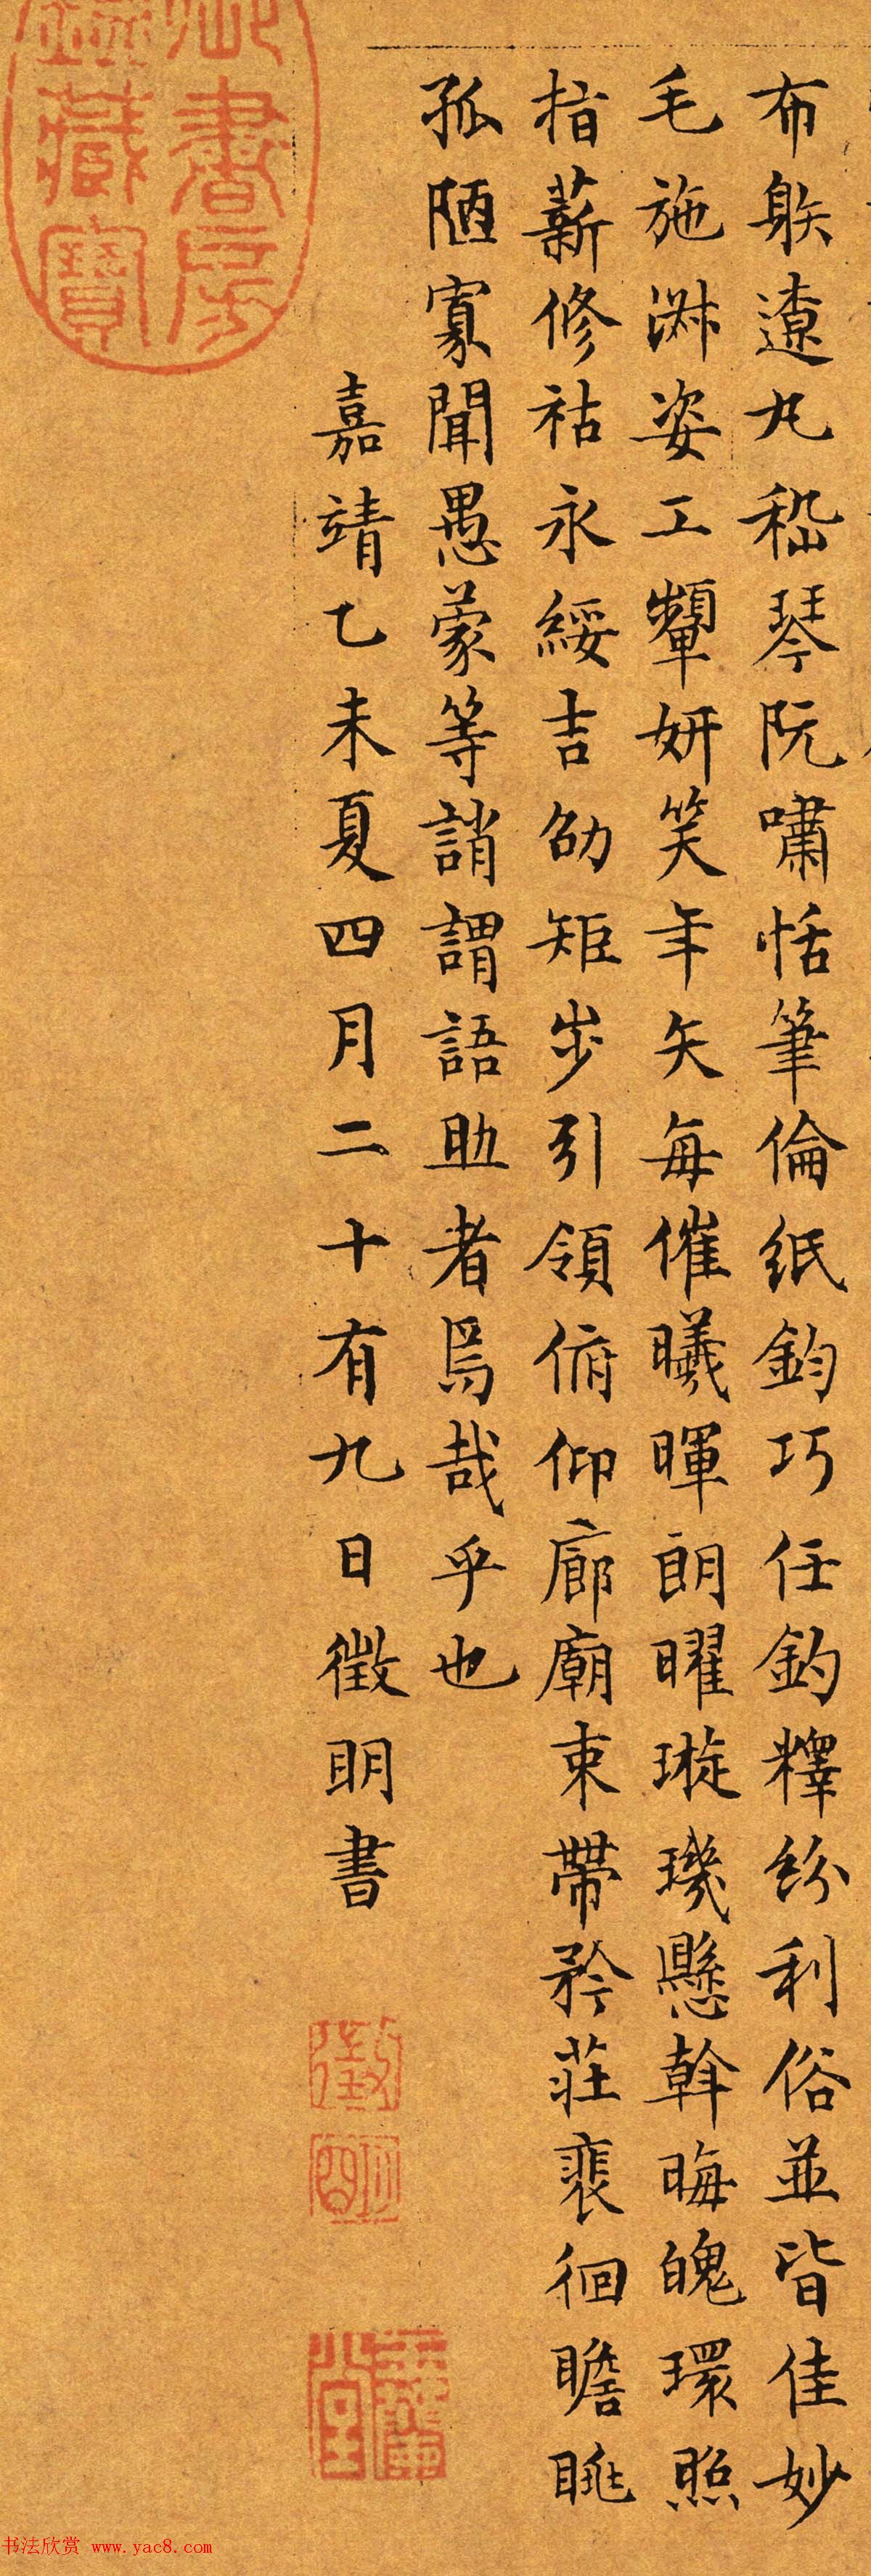 布躲遼丸嵇琴阮嘯恬筆倫紙鈞巧任釣釋紛利俗並皆佳妙
毛施淑姿工顰妍笑年矢每催曦暉朗曜璇璣懸斡晦魄環照
指薪修祜永綏吉劭矩步引領俯仰廊廟束帶矜莊裴徊瞻眺
孤陋寡聞愚蒙等誚謂語助者焉哉乎也
嘉靖乙未夏四月二十有九日徵明書
御書房
鑑藏寶
徵
明
書法欣赏 www.yac8.com